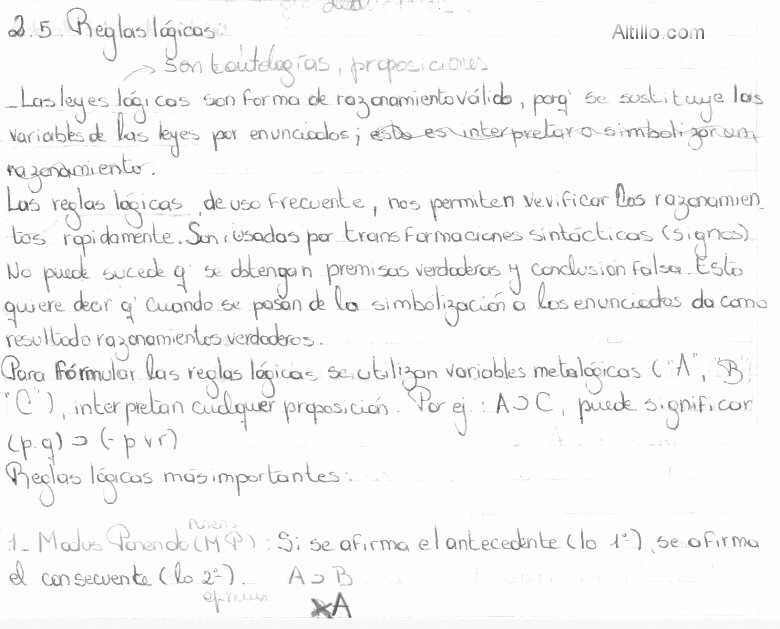 2.5 Reglas lógicas:
Altillo.com
→ son tautologías, proposiciones
- Las leyes lógicas son forma de razonamiento válido, porq' se sustituye las
variables de las leyes por enunciados; esto es interpretar o simbolizar un
razonamiento.
Las reglas lógicas, de uso frecuente, nos permiten verificar los razonamien_
tos rapidamente. Son usadas por transformaciones sintácticas (signos)
No puede sucede q' se obtengan premisas verdaderas y conclusion falsa. Esto
quiere decir q' cuando se pasan de la simbolización a los enunciados da como
resultado razonamientos verdaderos.
Para fórmular las reglas lógicas, se utilizan variables metalógicas ("A", "B"
"C"), interpretan cualquer proposición. Por ej: A⊃C, puede significar
(p.q) ⊃ (-p v r)
Reglas lógicas más importantes:
Ponens
1- Modus Ponendo (MP): Si se afirma el antecedente (lo 1º), se afirma
el consecuente (lo 2º). A⊃B
A